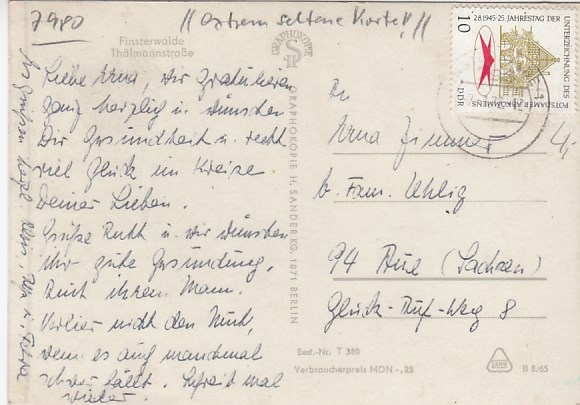 7980
// Extrem seltene Karte!! //
Finsterwalde
Thälmannstraße
Liebe Erna, wir gratulieren
ganz herzlich u. wünschen
Dir Gesundheit u. recht
viel Glück im Kreise
Deiner Lieben.
Grüße Ruth u. wir wünschen
ihr gute Gesundung,
auch ihrem Mann.
Verlier nicht den Mut,
wenn es auch manchmal
schwer fällt. Schreib mal
wieder.
Es grüßen herzl.
GRAPHOKOPIE
GRAPHOKOPIE H. SANDER KG, 1071 BERLIN
2.8.1945-25. JAHRESTAG DER
UNTERZEICHNUNG DES
POTSDAMER ABKOMMENS
DDR
10
4,-
An
Erna Zimmer
b. Fam. Uhlig
94 Aue (Sachsen)
Glück-Auf-Weg 8
Best.-Nr. T 380
Verbraucherpreis MDN -,25
II 8/65